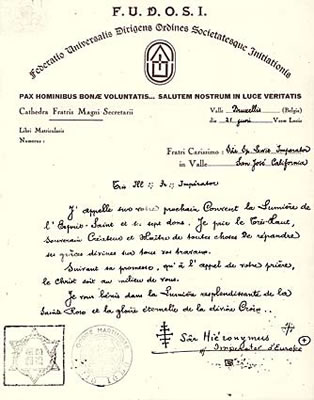 F. U. D. O. S. I.
Federatio Universalis Dirigens Ordines Societatesque Initiationis
PAX HOMINIBUS BONÆ VOLUNTATIS... SALUTEM NOSTRUM IN LUCE VERITATIS
Cathedra Fratris Magni Secretarii
Valli: Bruxellis (Belgia)
die 21 juni Veræ Lucis
Libri Matricularis
Numerus:
Fratri Carissimo: Imperator
in Valle San José California
Très Ill Imperator
J'appelle sur votre prochain Convent la Lumière de
l'Esprit-Saint et ses sept dons. Je prie le Très-Haut,
Souverain Créateur et Maître de toutes choses de répandre
ses grâces divines sur tous vos travaux.
Suivant sa promesse, qu'à l'appel de votre prière,
le Christ soit au milieu de vous.
Je vous bénis dans la Lumière resplendissante de la
Sainte Rose et la gloire éternelle de la divine Croix.
Sâr Hiéronymus
Imperator d'Europe